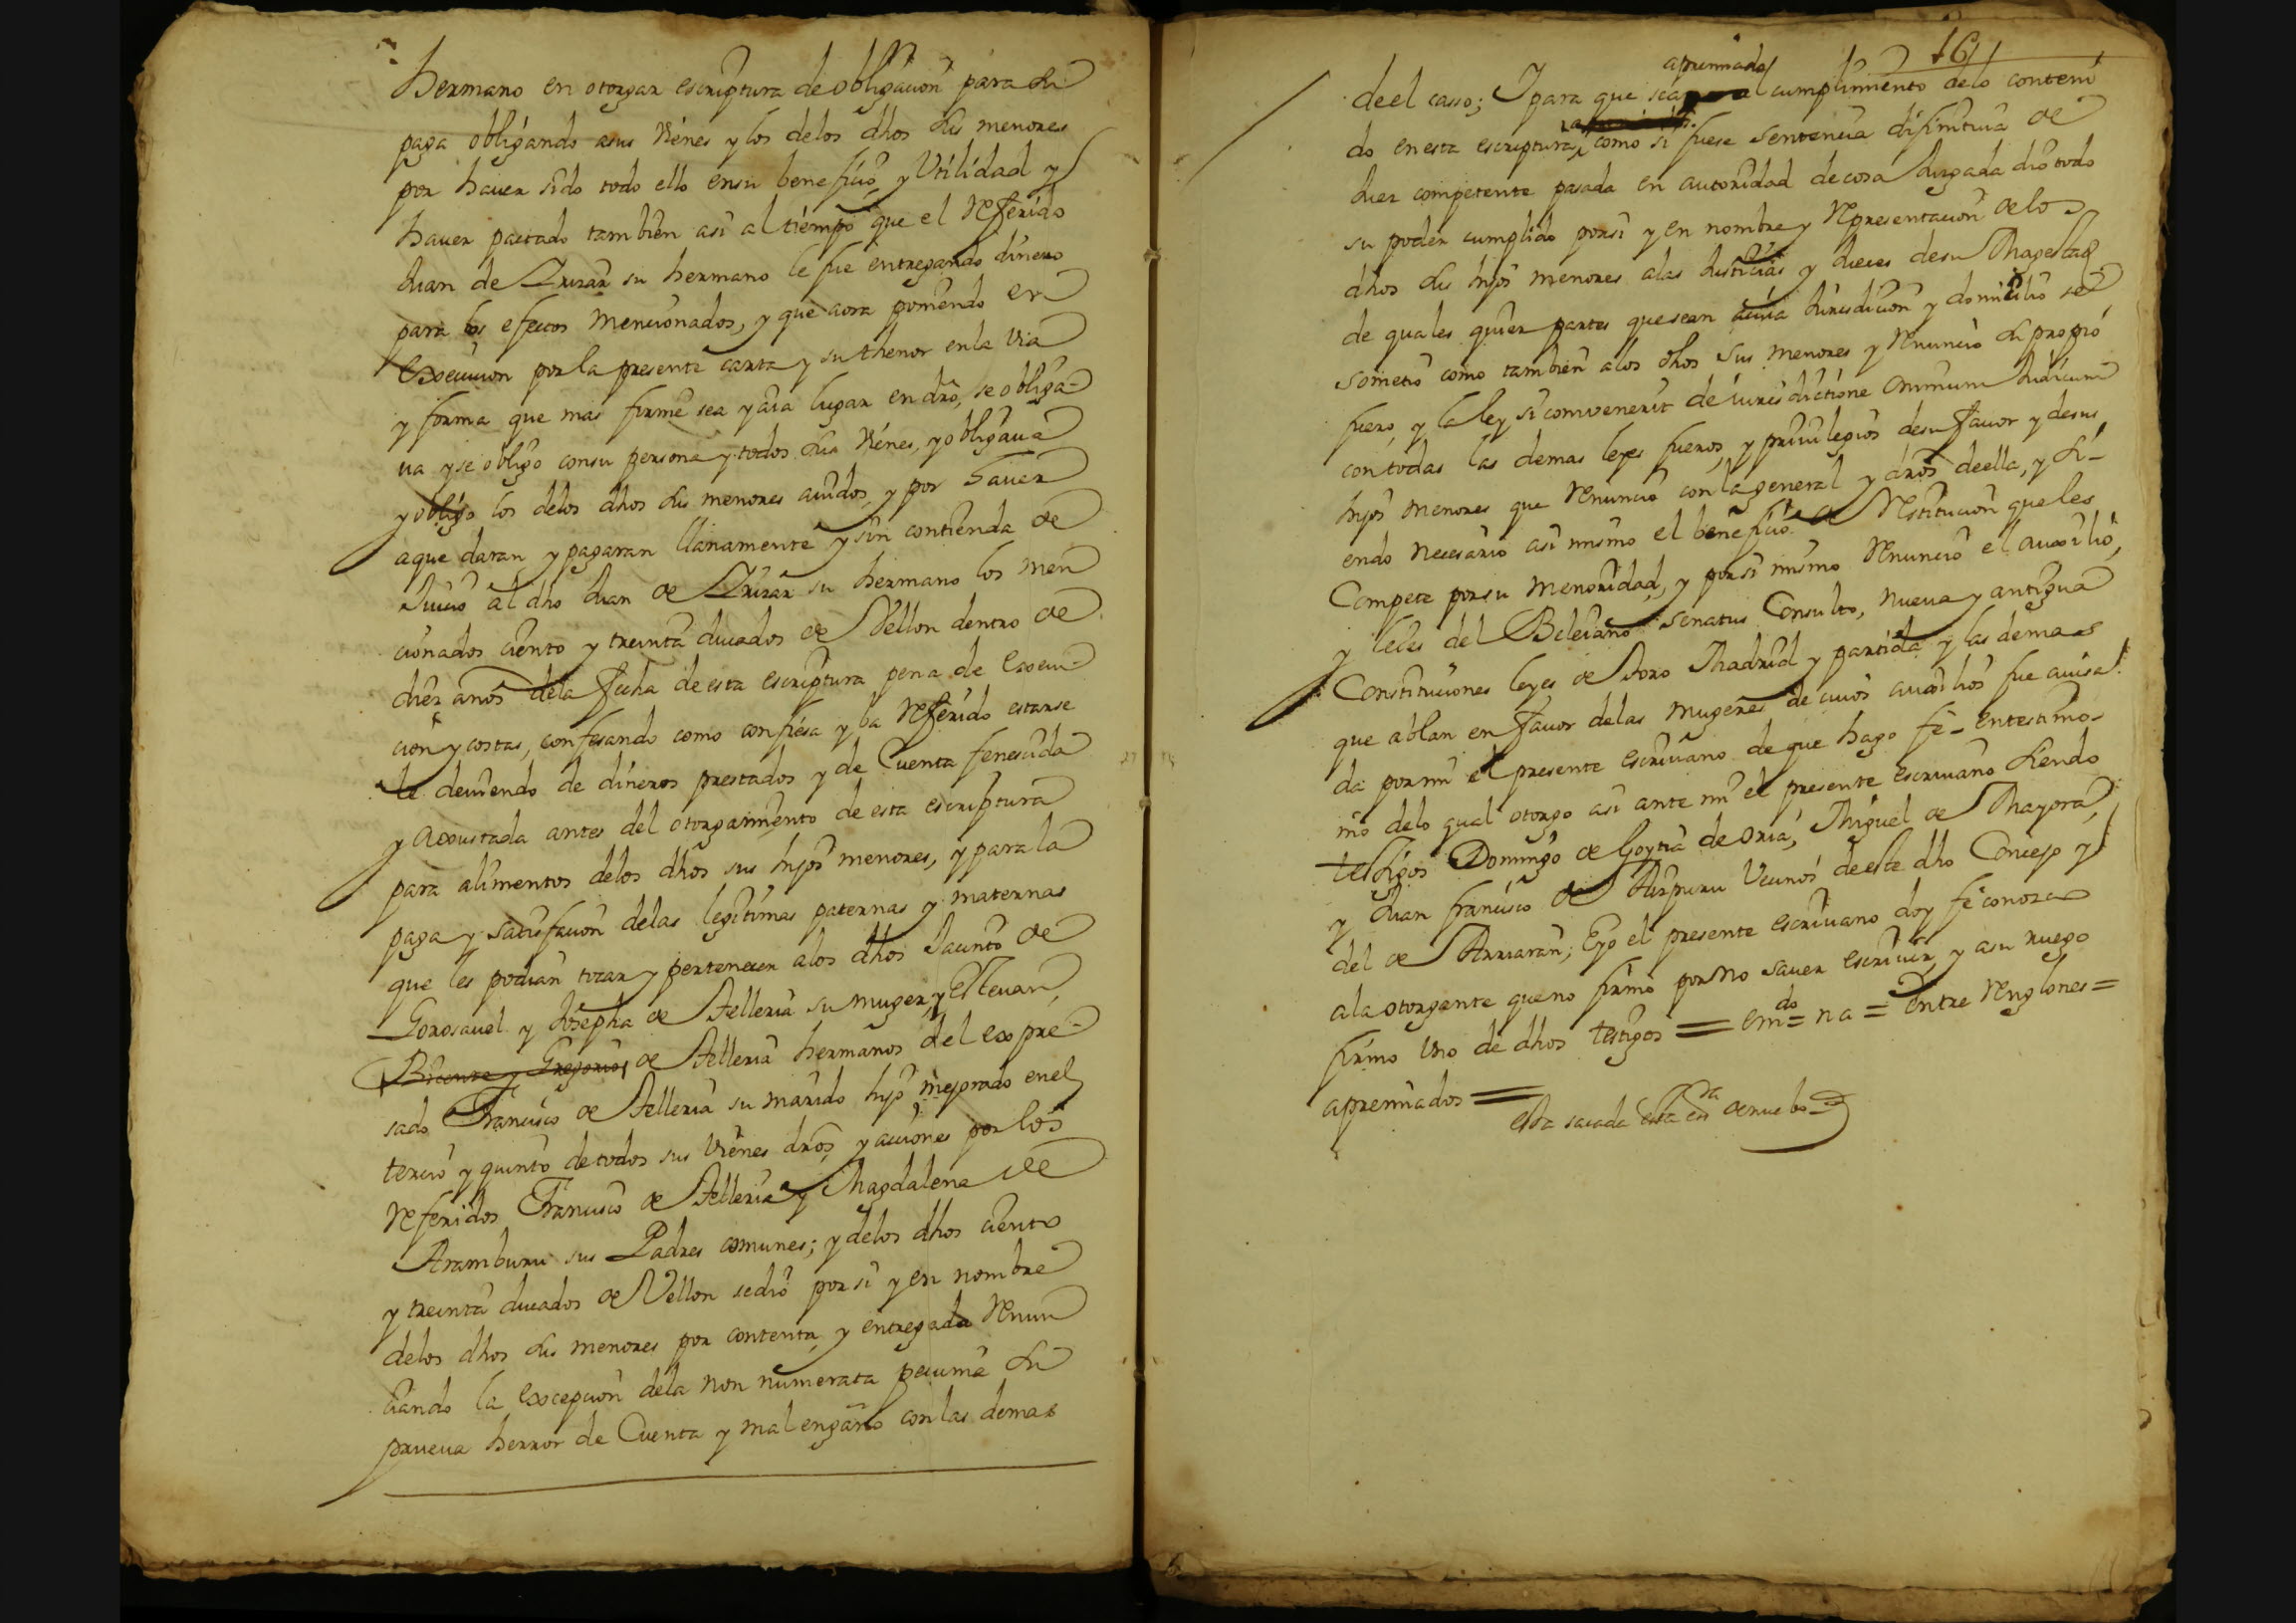 hermano en otorgar escriptura de obligacion para su
paga obligando asus vienes y los delos dhos sus menores
por hauer sido todo ello ensu beneficio y Vtilidad y
hauer pactado tambien asi al tiempo que el referido
Juan de su hermano le fue entregando dinero
para los efectos mencionados, y que aora poniendo en
execucion por la presente carta y su thenor en la via
y forma que mas firme sea y aia lugar en dro, se obliga-
ua y se obligo consu persona y todos sus vienes, y obligaua
y obligo los delos dhos sus menores auidos y por hauer
aque daran y pagaran llanamente y sin contienda de
Juicio al dho Juan de su hermano los men
cionados ciento y treinta ducados de Vellon dentro de
diez años dela fecha de esta escriptura pena de execu-
cion y costas, confesando como confiesa y ba referido estarse
le deuiendo de dineros prestados y de Cuenta fenescida
y axustada antes del otorgamiento de esta escriptura
para alimentos delos dhos sus hijos menores, y para la
paga y satisfacion delas legitimas paternas y maternas
que les podian tocar y pertenecer alos dhos Jacinto de
Gorosauel y Josepha de Telleria su muger, y Esteuan,
Bicente y Gregorio, de Telleria hermanos del expre-
sado Francisco de Telleria su marido hijo mejorado enel
tercio y quinto de todos sus vienes dros, y acciones por los
referidos Francisco de Telleria y Magdalena de
Aramburu sus Padres comunes; y delos dhos ciento
y treinta ducados de Vellon sedio por si y en nombre
delos dhos sus menores por contenta y entregada renun
ciando la excepcion dela non numerata pecunia su
prueua herror de Cuenta y mal engaño con las demas
161
apremiados
deel casso; Y para que sean al cumplimiento delo conteni
do enesta escriptura, como si fuese sentencia difinitiua de
Juez competente pasada en autoridad de cosa Juzgada dio todo
su poder cumplido por si y en nombre y representacion delos
dhos sus hijos menores alas Justicias y Jueces desu Magestad
de quales quier partes que sean acuia Jurisdicion y domicilio se
sometio como tambien alos dhos sus menores y renuncio su propio
fuero, y la ley si convenerit de iurisdictione omnium Judicum
con todas las demas leyes fueros, y priuilegios desu fauor y desus
hijos menores que renuncio con la general y dros deella, y si-
endo necesario asi mismo el beneficio de restitucion que les
compete por su menoridad, y por si mismo renuncio el auxilio,
y leies del Beleiano Senatus Consulto, nueua y antigua
Constituciones leyes de Toro Madrid y partida y las demas
que ablan en fauor delas mugeres de cuios auxilios fue auisa-
da por mi el presente escriuano de que hago fe - entestimo-
nio delo qual otorgo asi ante mi el presente escriuano siendo
testigos Domingo de Goytia de oria, Miguel de Mayora,
y Juan francisco de Aizpuru vecinos deeste dho Concejo y
del de Arriaran; Eyo el presente escriuano doy fe conozco
ala otorgante que no firmo por no sauer escriuir, y asu ruego
firmo vno de dhos testigos = em.do = na = entre renglones =
apremiados =
esta sacada esta es.ra denuebo